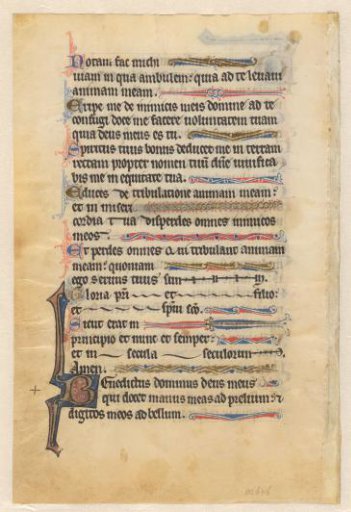 Notam fac michi
uiam in qua ambulem: quia ad te leuaui
animam meam.
Eripe me de inimicis meis domine ad te
confugi doce me facere uoluntatem tuam
quia deus meus es tu.
Spiritus tuus bonus deducet me in terram
rectam propter nomen tuū dn̄e uiuifica
bis me in equitate tua.
Educes de tribulatione animam meam:
et in miseri
cordia tua disperdes omnes inimicos
meos.
Et perdes omnes q̄ tribulant animam
meam: quoniam
ego seruus tuus sum
Gloria pr̄i et filio:
et sp̄ui sc̄o.
Sicut erat in
principio et nunc et semper:
et in secula seculorum.
Amen.
Benedictus dominus deus meus
qui docet manus meas ad prelium: &
digitos meos ad bellum.